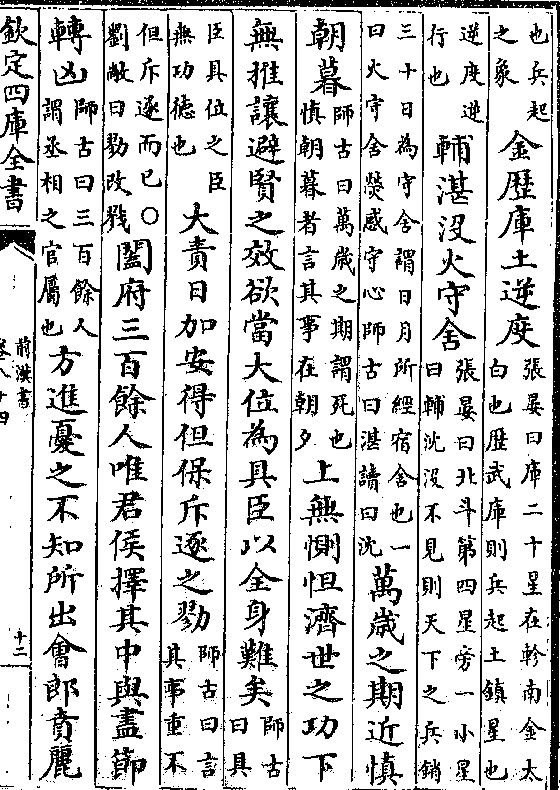 也兵起之象金歷庫土逆度張晏曰庫二十星在軫南金太白也歷武庫則兵起土鎮星也
逆度逆行也輔湛沒火守舍張晏曰北斗第四星旁一小星曰輔沈沒不見則天下之兵銷
三十日為守舍謂日月所經宿舍也一曰火守舍熒惑守心師古曰湛讀曰沈萬歲之期近慎
朝暮師古曰萬歲之期謂死也慎朝暮者言其事在朝夕上無惻怛濟世之功下
無推讓避賢之效欲當大位為具臣以全身難矣師古曰具
臣具位之臣無功德也大責日加安得但保斥逐之勠師古曰言其事重不
但斥逐而已○劉敞曰勠改戮闔府三百餘人唯君侯擇其中與盡節
轉凶師古曰三百餘人謂丞相之官屬也方進憂之不知所出會郎賁麗
欽定四庫全書
前漢書
卷八十四
十二